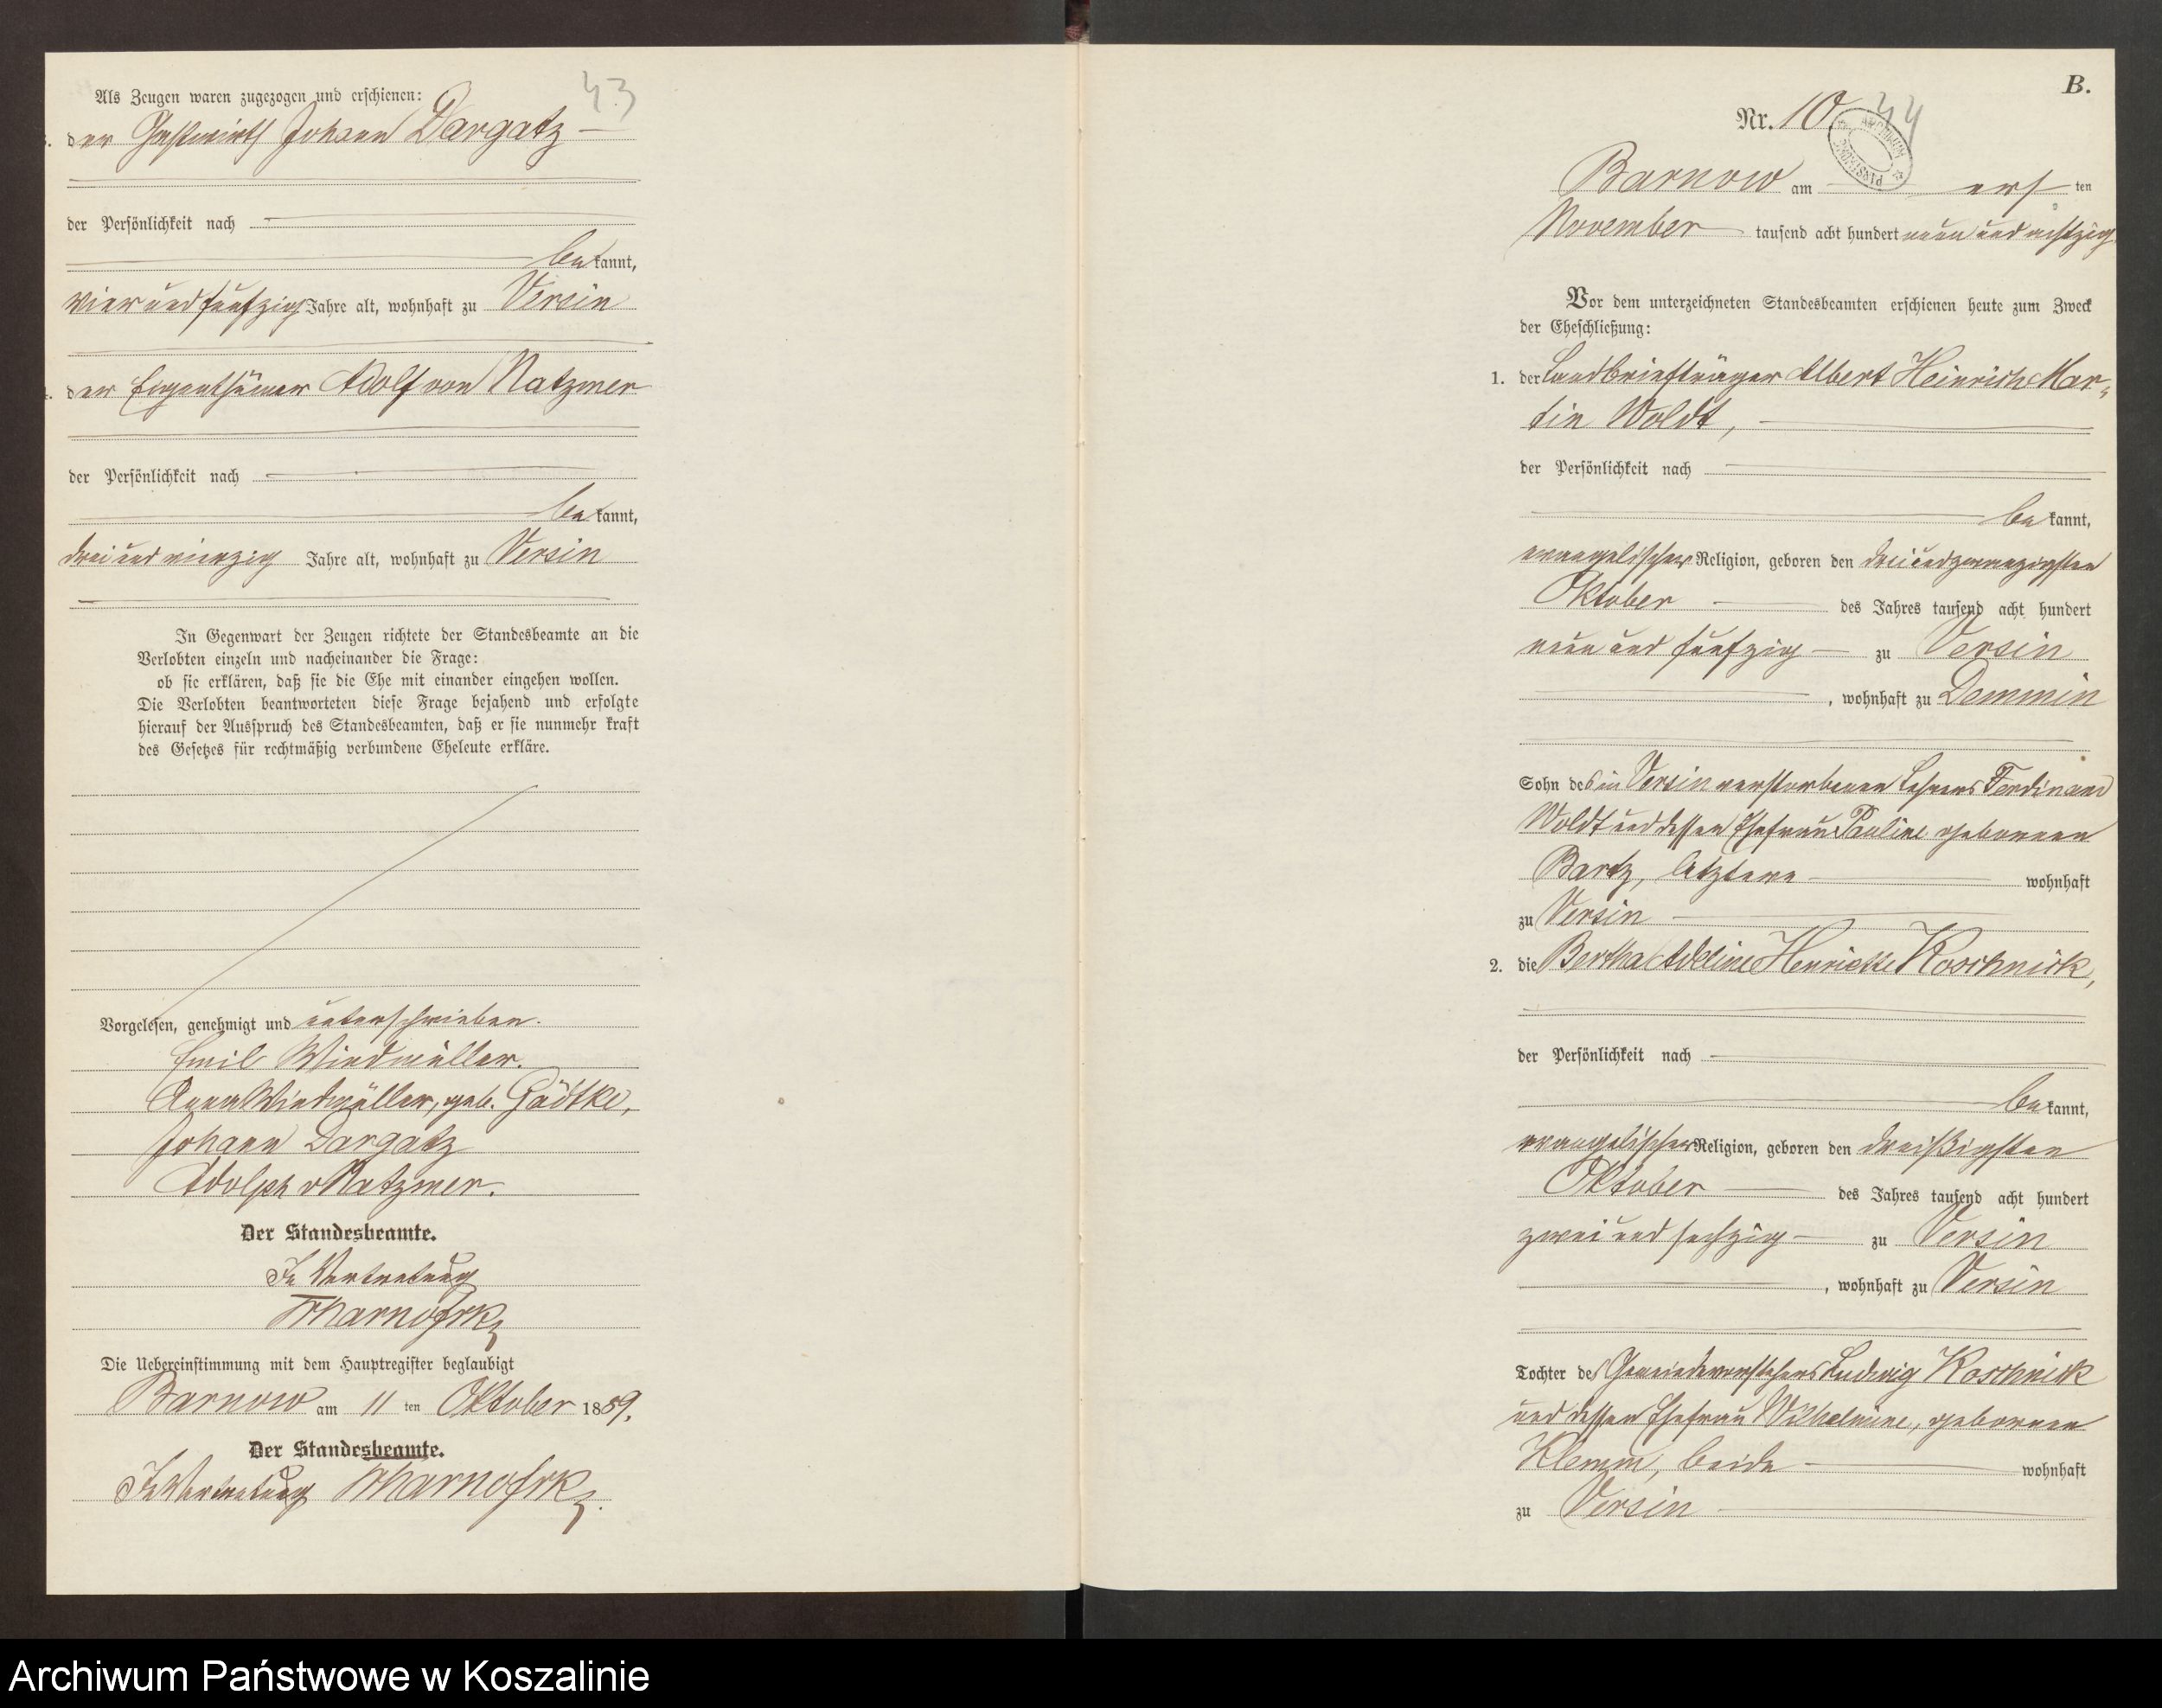 43
Als Zeugen waren zugezogen und erschienen:
der Gastwirth Johann Dargatz
der Persönlichkeit nach
bekannt,
vier und fünfzig Jahre alt, wohnhaft zu Versin
der Eigenthümer Adolf von Natzmer
der Persönlichkeit nach
bekannt,
drei und vierzig Jahre alt, wohnhaft zu Versin
In Gegenwart der Zeugen richtete der Standesbeamte an die
Verlobten einzeln und nacheinander die Frage:
ob sie erklären, daß sie die Ehe mit einander eingehen wollen.
Die Verlobten beantworteten diese Frage bejahend und erfolgte
hierauf der Ausspruch des Standesbeamten, daß er sie nunmehr kraft
des Gesetzes für rechtmäßig verbundene Eheleute erkläre.
Vorgelesen, genehmigt und unterschrieben.
Emil Windmüller.
Anna Windmüller, geb. Gädtke,
Johann Dargatz
Adolph v Natzmer.
Der Standesbeamte.
In Vertretung
Die Uebereinstimmung mit dem Hauptregister beglaubigt
Barnow am 11 ten Oktober 1889.
Der Standesbeamte.
In Vertretung
B.
Nr. 10 44
Barnow am ers ten
November tausend acht hundert neun und achtzig
Vor dem unterzeichneten Standesbeamten erschienen heute zum Zweck
der Eheschließung:
1. der Landbriefträger Albert Heinrich Mar-
tin Woldt,
der Persönlichkeit nach
bekannt,
evangelischer Religion, geboren den drei und zwanzigsten
Oktober des Jahres tausend acht hundert
neun und fünfzig zu Versin
, wohnhaft zu Demmin
Sohn des in Versin verstorbenen Lehrers Ferdinand
Woldt und dessen Ehefrau Pauline geborenen
Bartz, letztere wohnhaft
zu Versin
2. die Bertha Adeline Henriette Koschnick,
der Persönlichkeit nach
bekannt,
evangelischer Religion, geboren den dreißigsten
Oktober des Jahres tausend acht hundert
zwei und sechzig zu Versin
, wohnhaft zu Versin
Tochter des Gemeindevorstehers Ludwig Koschnick
und dessen Ehefrau Wilhelmine, geborenen
Klemm, beide wohnhaft
zu Versin
Archiwum Państwowe w Koszalinie